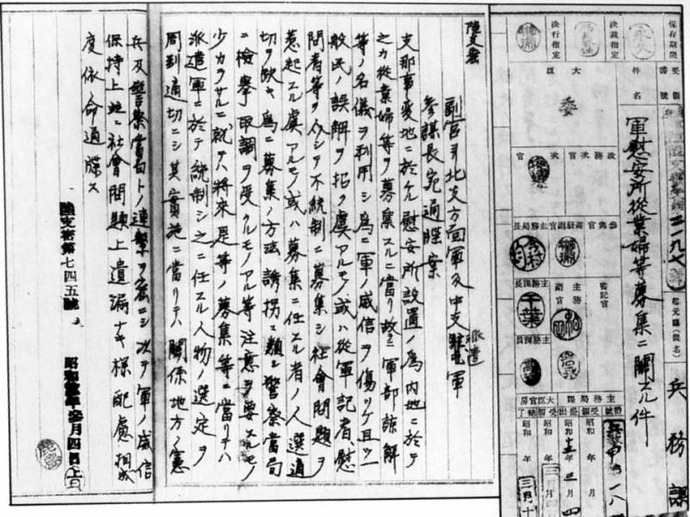 保存期間
永久
決裁指定
決行指定
受領番号
二一九七
起元庁(課名)
兵務課
件名
軍慰安所従業婦等募集ニ関スル件
大臣
委
次官
政務次官
参与官
高級副官
主務局長
梅津
今村
書記官
主務副官
主務課長
千葉
主務課員
大臣官房
主務局課
昭和 年 月
昭和十三年三月四
陸支密
副官ヨリ北支方面軍及中支派遣軍
参謀長宛通牒案
支那事変地ニ於ケル慰安所設置ノ為内地ニ於テ
之カ従業婦等ヲ募集スルニ當リ故ラニ軍部諒解
等ノ名儀ヲ利用シ為ニ軍ノ威信ヲ傷ツケ且ツ一
般民ノ誤解ヲ招ク虞アルモノ或ハ従軍記者慰
問者等ヲ介シテ不統制ニ募集シ社會問題ヲ
惹起スル虞アルモノ或ハ募集ニ任スル者ノ人選適
切ヲ欠キ為ニ募集ノ方法誘拐ニ類シ警察當局
ニ検挙取調ヲ受クルモノアル等注意ヲ要スルモノ
少カラサルニ就テハ将来是等ノ募集等ニ當リテハ
派遣軍ニ於テ統制シ之ニ任スル人物ノ選定ヲ
周到適切ニシ其実施ニ當リテハ関係地方ノ憲
兵及警察當局トノ連繋ヲ密ニシ次テ軍ノ威信
保持上並ニ社會問題上遺漏ナキ様配慮相成
度依命通牒ス
陸支密第七四五號 昭和拾参年参月四日